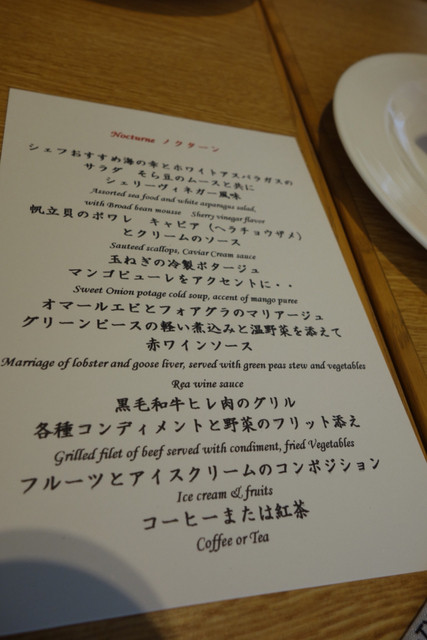 Nocturne ノクターン
シェフおすすめ海の幸とホワイトアスパラガスの
サラダ　そら豆のムースと共に
シェリーヴィネガー風味
Assorted sea food and white asparagus salad,
with Broad bean mousse Sherry vinegar flavor
帆立貝のポワレ　キャビア（ヘラチョウザメ）
とクリームのソース
Sauteed scallops, Caviar Cream sauce
玉ねぎの冷製ポタージュ
マンゴピューレをアクセントに・・
Sweet Onion potage cold soup, accent of mango puree
オマールエビとフォアグラのマリアージュ
グリーンピースの軽い煮込みと温野菜を添えて
赤ワインソース
Marriage of lobster and goose liver, served with green peas stew and vegetables
Rea wine sauce
黒毛和牛ヒレ肉のグリル
各種コンディメントと野菜のフリット添え
Grilled filet of beef served with condiment, fried Vegetables
フルーツとアイスクリームのコンポジション
Ice cream & fruits
コーヒーまたは紅茶
Coffee or Tea